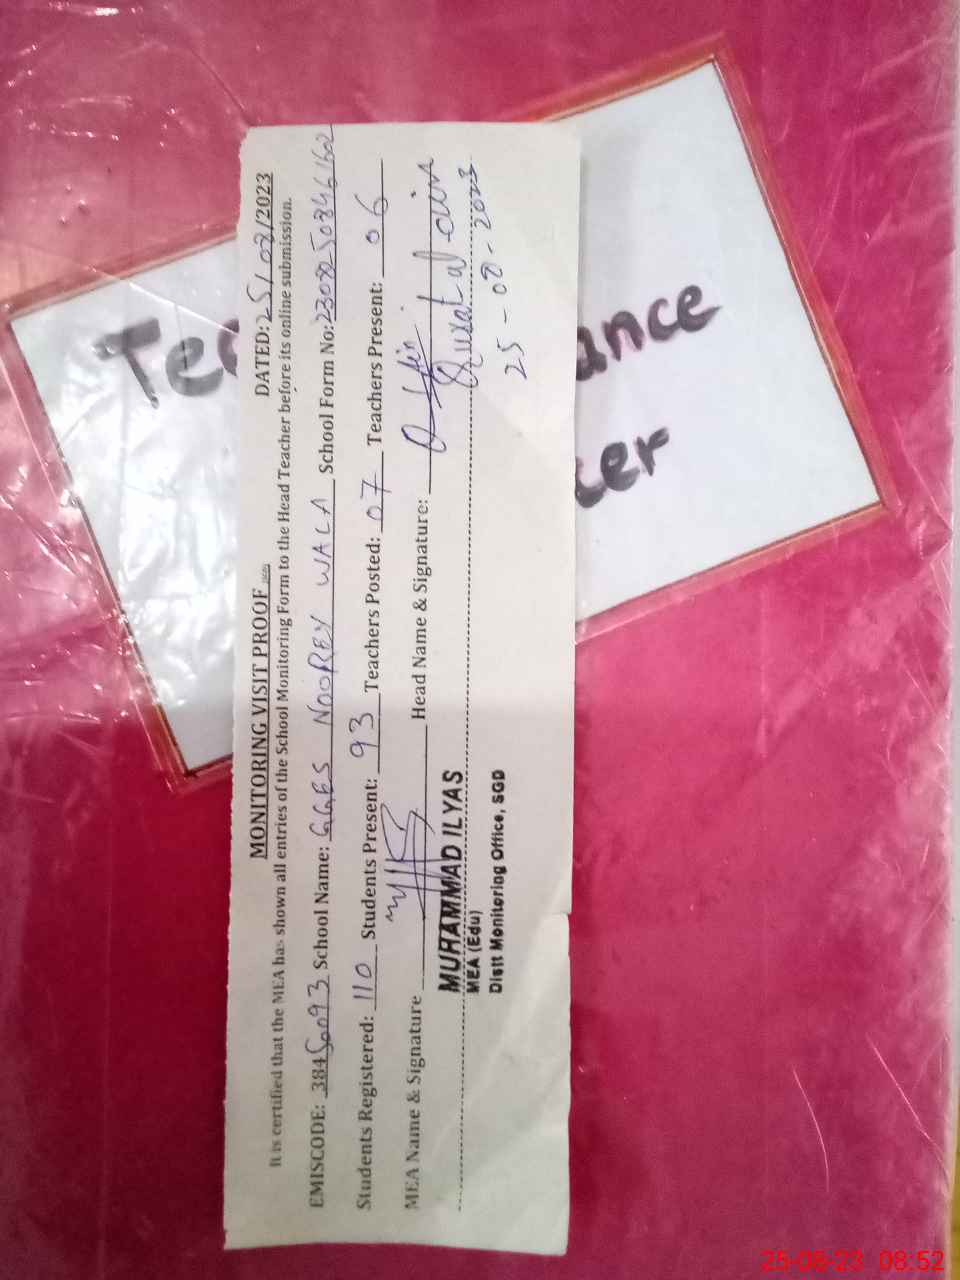 MONITORING VISIT PROOF
DATED: 25/08/2023
It is certified that the MEA has shown all entries of the School Monitoring Form to the Head Teacher before its online submission.
EMISCODE: 38450093 School Name: GGES NOOREY WALA School Form No: 2308250846162
Students Registered: 110 Students Present: 93 Teachers Posted: 07 Teachers Present: 06
MEA Name & Signature Head Name & Signature:
Qurat ul ain
25-08-2023
MUHAMMAD ILYAS
MEA (Edu)
Distt Monitoring Office, SGD
Tea ance
ter
25-08-23 08:52